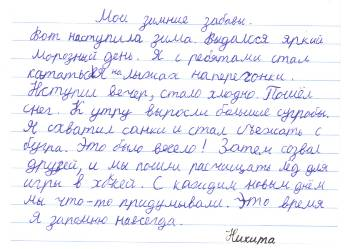 Мои зимние забавы.
Вот наступила зима. Выдался яркий
морозный день. Я с ребятами стал
кататься на лыжах наперегонки.
Наступил вечер, стало хлодно. Пошёл
снег. К утру выросли большие сугробы.
Я схватил санки и стал съезжать с
бугра. Это было весело! Затем созвал
друзей, и мы пошли расчищать лёд для
игры в хоккей. С каждым новым днём
мы что-то придумывали. Это время
я запомню навсегда.
Никита